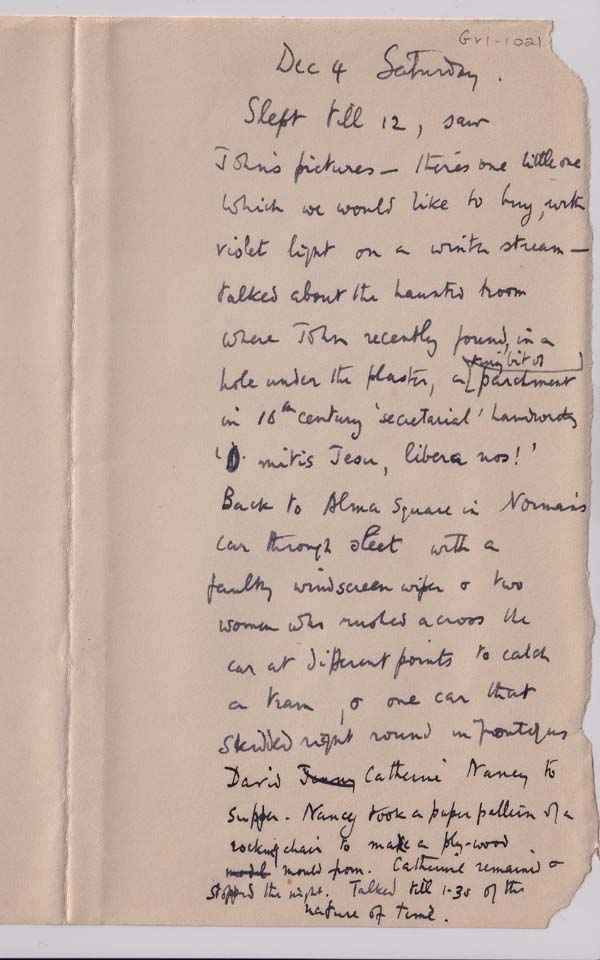 GVI-1021
Dec 4 Saturday.
Slept till 12, saw
John's pictures — there's one little one
which we would like to buy, with
violet light on a winter stream —
talked about the haunted room
where John recently found, in a
tiny bit of
hole under the plaster, a parchment
in 16th century 'secretarial' handwriting
'O mitis Jesu, libera nos!'
Back to Alma Square in Norman's
car through sleet with a
faulty windscreen wiper & two
women who rushed across the
car at different points to catch
a tram, & one car that
skidded right round in front of us
David Catherine Nancy to
supper. Nancy took a paper pattern of a
rocking chair to make a ply-wood
model mould from. Catherine remained &
stopped the night. Talked till 1-30 of the
nature of time.